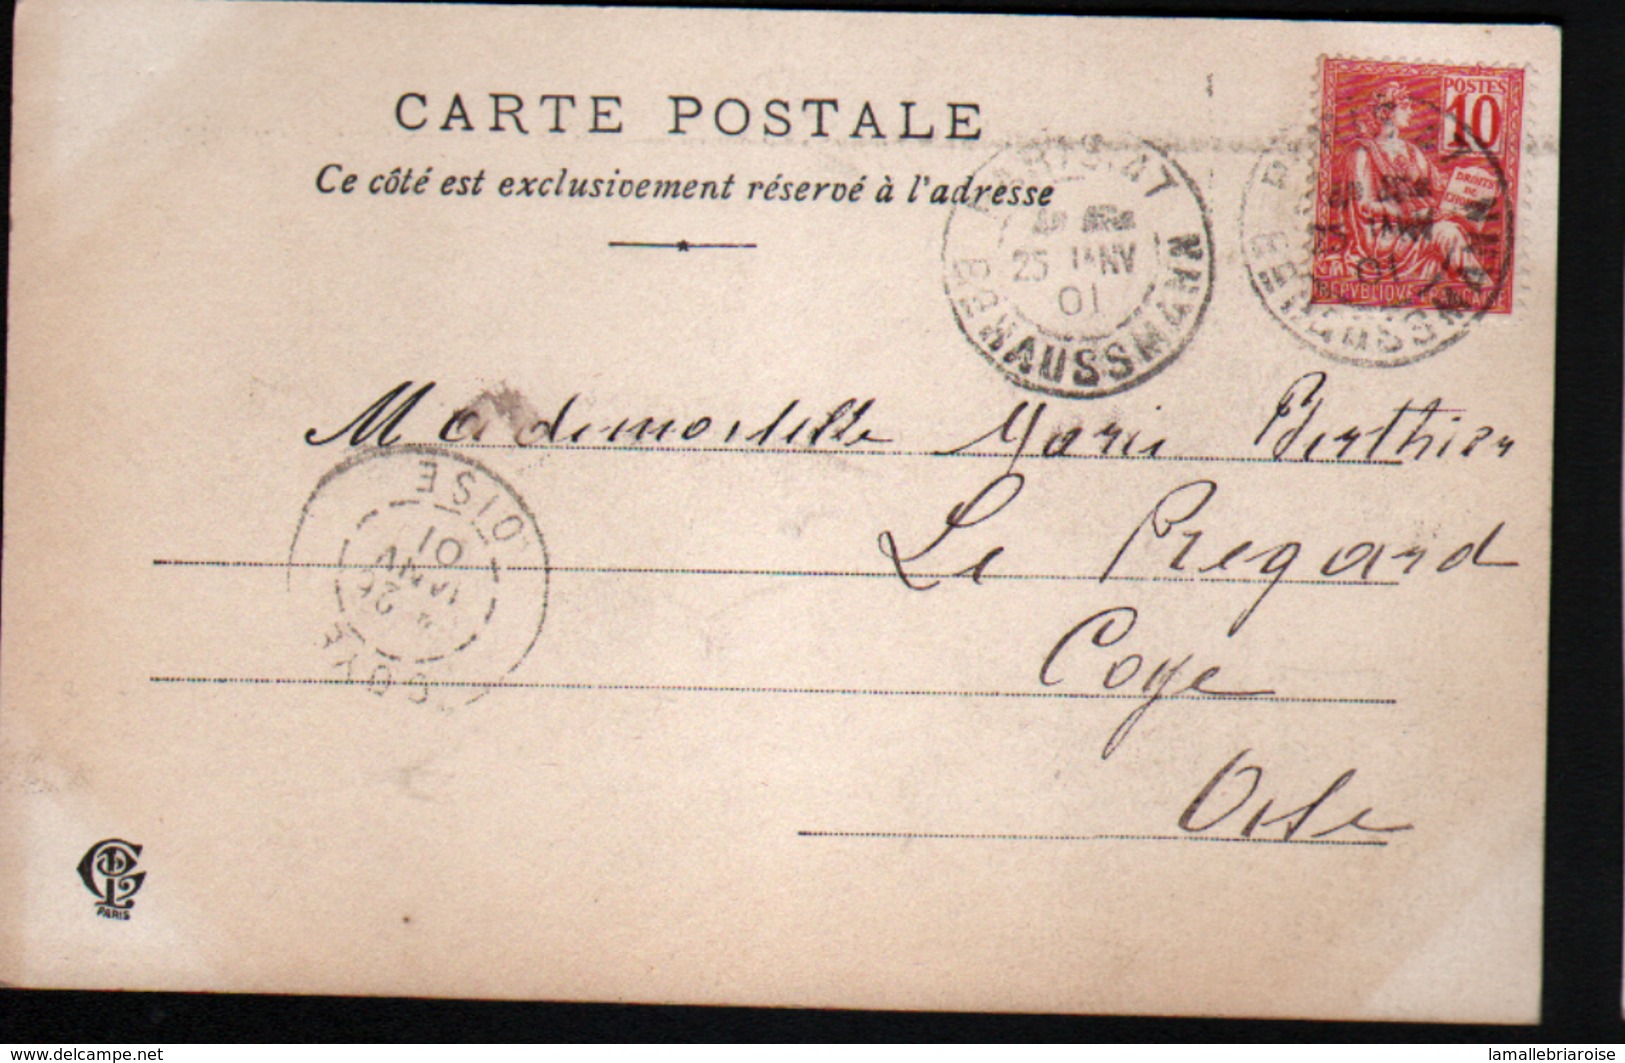 CARTE POSTALE
Ce côté est exclusivement réservé à l'adresse
POSTES
10
DROITS DE
REPVBLIQVE FRANCAISE
PARIS 47
25 JANV
01
BD HAUSSMANN
PARIS 47
JANV
01
BD HAUSSMANN
Mademoiselle Marie Berthier
Le Regard
Coye
Oise
OISE
26
JANV
01
COYE
PARIS
www.delcampe.net
lamallebriaroise